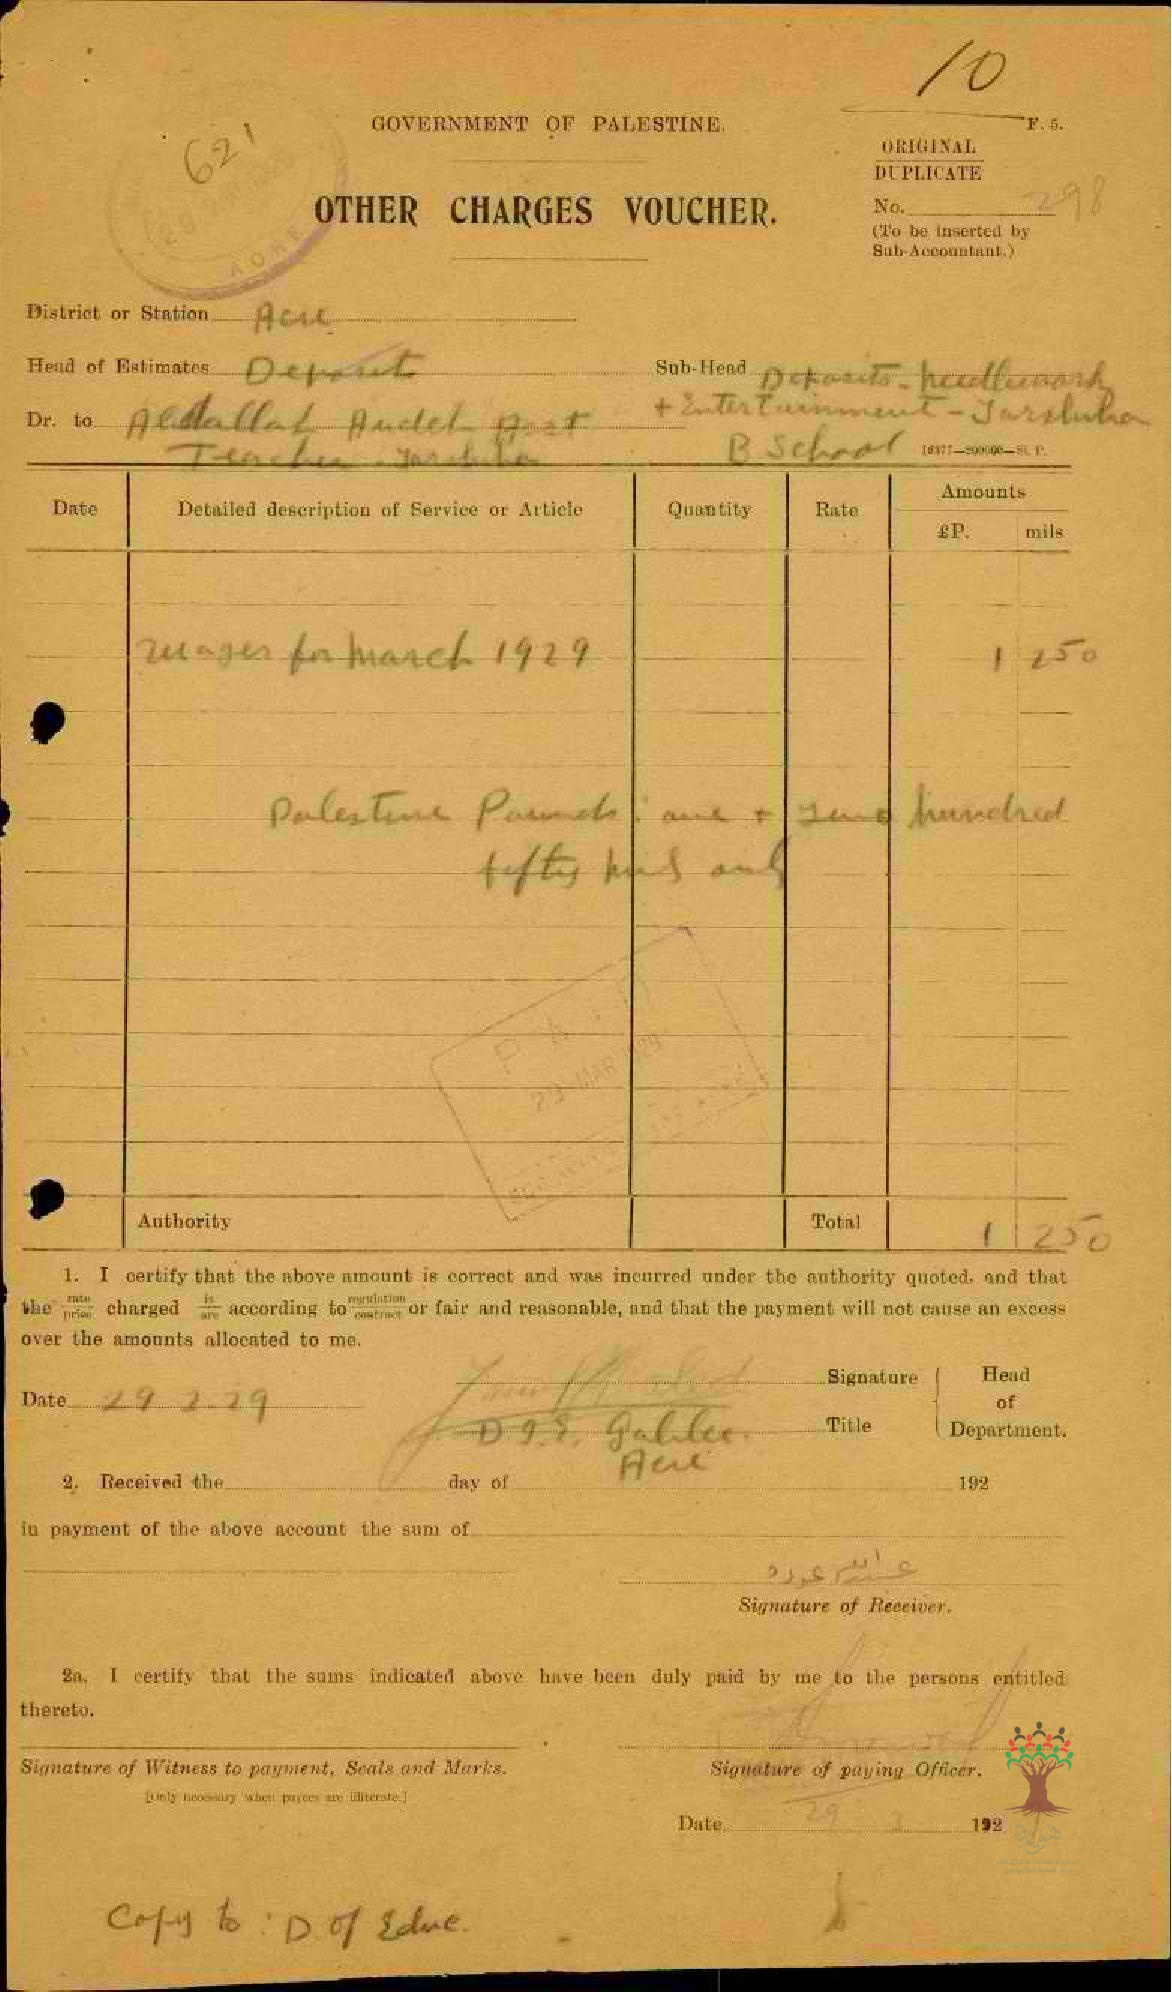 10
621
ACRE
GOVERNMENT OF PALESTINE.
F. 5.
ORIGINAL
DUPLICATE
OTHER CHARGES VOUCHER.
No. 298
(To be inserted by
Sub-Accountant.)
District or Station Acre
Head of Estimates Deposit
Sub-Head Deposits - needlework
+ Entertainment - Tarshiha
B. School
Dr. to Abdallah Audeh Asst
Teacher Tarshiha
Date Detailed description of Service or Article Quantity Rate Amounts
£P. mils
Wages for March 1929 1 250
Palestine Pounds: one + two hundred
fifty mils only
PAID
29 MAR 1929
Authority Total 1 250
1. I certify that the above amount is correct and was incurred under the authority quoted, and that
the rate price charged is are according to regulation contract or fair and reasonable, and that the payment will not cause an excess
over the amounts allocated to me.
Date 29.3.29
Signature
Title
Head
of
Department.
D.I.E. Galilee.
Acre
2. Received the day of 192
in payment of the above account the sum of
عبدالله عوده
Signature of Receiver.
2a. I certify that the sums indicated above have been duly paid by me to the persons entitled
thereto.
Signature of Witness to payment, Seals and Marks.
[Only necessary when payees are illiterate.]
Signature of paying Officer.
Date 29 3 192
هوية
Copy to: D of Educ.